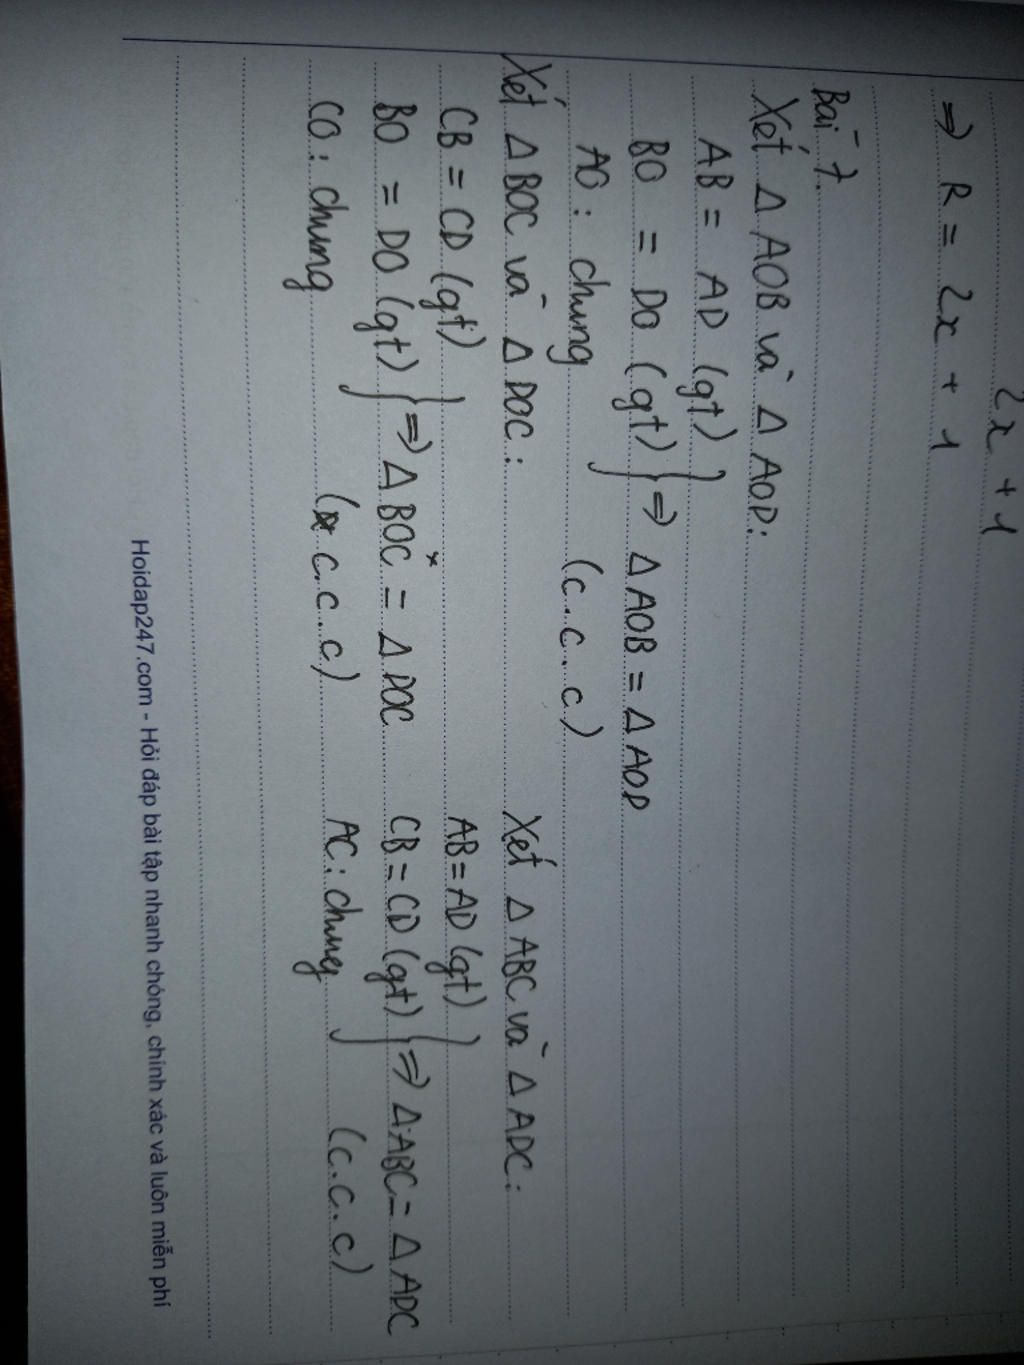 2x + 1
⇒ R = 2x + 1
Bài 7.
Xét Δ AOB và Δ AOD:
AB = AD (gt)
BO = DO (gt) } ⇒ Δ AOB = Δ AOD
AO : chung (c.c.c)
Xét Δ BOC và Δ DOC:
CB = CD (gt)
BO = DO (gt) } ⇒ Δ BOC = Δ DOC
CO : chung (c.c.c)
Xét Δ ABC và Δ ADC:
AB = AD (gt)
CB = CD (gt) } ⇒ Δ ABC = Δ ADC
AC : chung (c.c.c)
Hoidap247.com - Hỏi đáp bài tập nhanh chóng, chính xác và luôn miễn phí